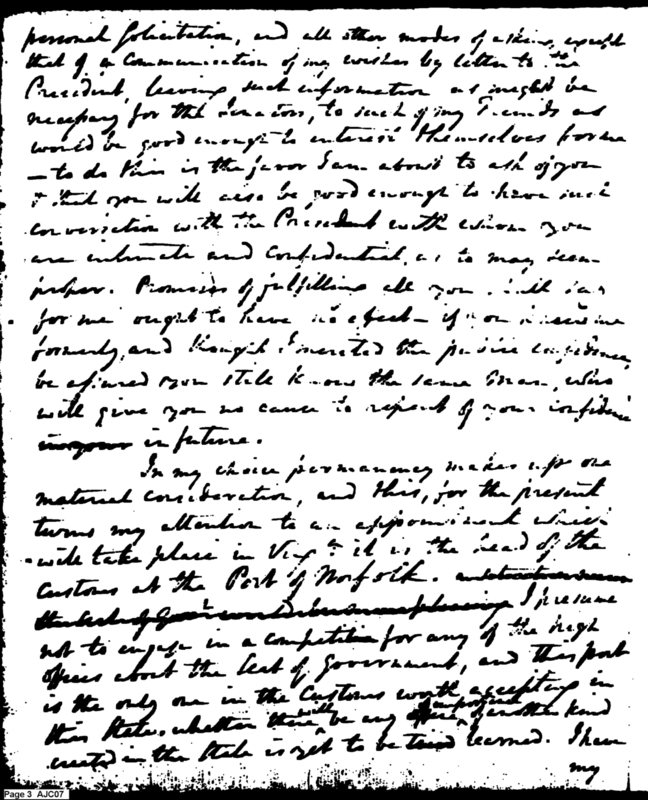 personal Solicitation, and all other modes of asking, except
that of a Communication of my wishes by letter to the
President, leaving such information as might be
necessary for the Senators, to such of my Friends as
would be good enough to interest themselves for me
— to do this is the favor I am about to ask of you
& that you will also be good enough to have such
conversation with the President with whom you
are intimate and confidential, as to may seem
proper. Promises of fulfilling all you
for me ought to have no effect — if you knew me
formerly, and thought I merited the public confidence,
be assured you still know the same man, who
will give you no cause to repent of your confidence
in your in future.
In my choice permanency makes up one
material consideration, and this, for the present
turns my attention to an appointment which
will take place in Virga it is the head of the
Customs at the Port of Norfolk.
the Seat of Govt would pleasing I presume
not to engage in a competition for any of the high
offices about the Seat of Government, and this post
is the only one in the Customs worth accepting in
this State. whether there will be any of another kind
created in the State is yet to be learned. I have
my
Page 3 AJC07